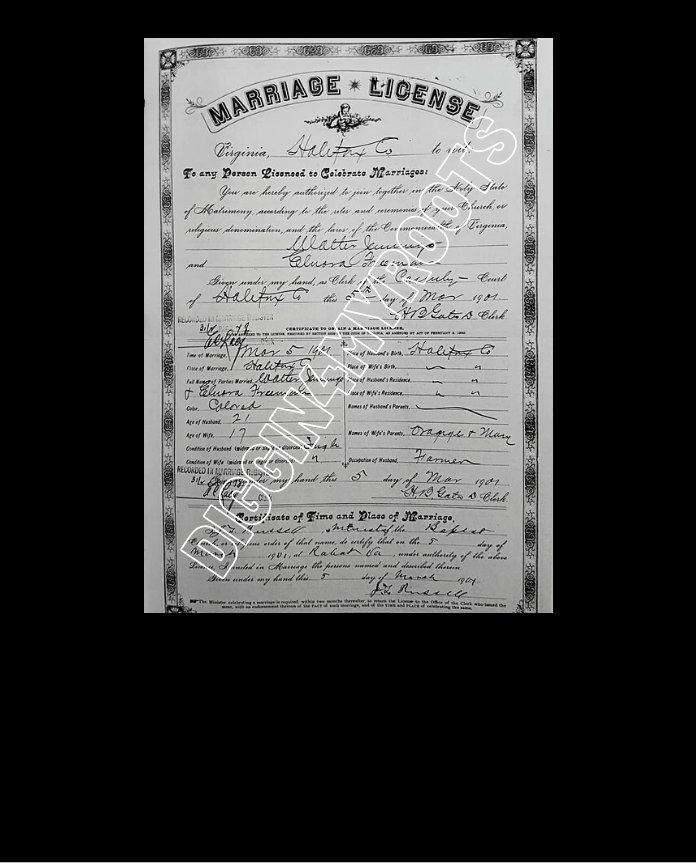 MARRIAGE LICENSE
Virginia, Halifax Co to wit:
To any Person Licensed to Celebrate Marriages:
You are hereby authorized to join together in the Holy State
of Matrimony, according to the rites and ceremonies of your Church, or
religious denomination, and the laws of the Commonwealth of Virginia,
Walter Jennings
and Elnora Freeman
Given under my hand, as Clerk of the County Court
of Halifax Co this 5th day of Mar 1901
H B Gates D. Clerk
RECORDED IN MARRIAGE REGISTER
CERTIFICATE TO OBTAIN A MARRIAGE LICENSE,
Time of Marriage, Mar 5 1901
Place of Marriage, Halifax Co
Full Names of Parties Married, Walter Jennings
& Elnora Freeman
Color, Colored
Age of Husband, 21
Age of Wife, 17
Condition of Husband (widowed or single or divorced), Single
Condition of Wife (widowed or single or divorced), "
Place of Husband's Birth, Halifax Co
Place of Wife's Birth, " "
Place of Husband's Residence, " "
Place of Wife's Residence, " "
Names of Husband's Parents,
Names of Wife's Parents, Orange & Mary
Occupation of Husband, Farmer
RECORDED IN MARRIAGE REGISTER
Given under my hand this 5 day of Mar 1901
H B Gates D. Clerk
Certificate of Time and Place of Marriage.
Russell of the Baptist
Church, or religious order of that name, do certify that on the 5 day of
March 1901, at Va, under authority of the above
License, I united in Marriage the persons named and described therein.
Given under my hand this 5 day of March 1901
Russell
The Minister celebrating a marriage is required, within two months thereafter, to return the License to the Office of the Clerk who issued the
same, with an endorsement thereon of the FACT of such marriage, and of the TIME and PLACE of celebrating the same.
DIGGIN4MYROOTS